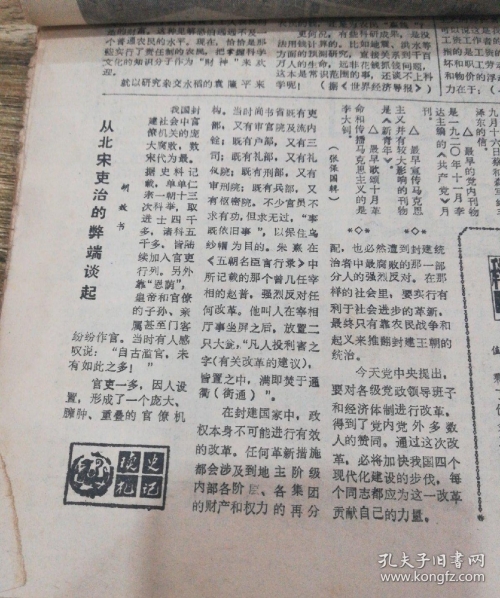 一个普通农民的水平。现在，恰恰是那
文化的知识分子作为“财神”来欢
迎。
就以研究杂交水稻的袁隆平来
这本是常识范围的事，还谈不上科
学呢！（据《世界经济导报》）
从北宋吏治的弊端谈起
胡放书
我国封
建社会中官
僚机关的庞
大腐败，数
宋代为最。
据史料记
载，单单仁
宗一朝十三
次科举，取
进士四千
多，诸科五
千多，皆陆
续加入官吏
行列。另外
靠“恩荫”，
皇帝和官僚
的子孙、亲
属甚至门客
纷纷作官。当时有人感
叹说：“自古滥官，未
有如此之多！”
官吏一多，因人设
置，形成了一个庞大、
臃肿、重叠的官僚机
构。当时尚书省既有吏
部，又有审官院及流内
铨；既有户部，又有三
司；既有礼部，又有礼
仪院；既有刑部，又有
审刑院；既有兵部，又
有枢密院。不少官员不
求有功，但求无过，“事
既依旧事”，以保住乌
纱帽为目的。朱熹在
《五朝名臣言行录》中
所记载的那个曾几任宰
相的赵普，强烈反对任
何改革。他叫人在宰相
厅事坐屏之后，放置二
只大瓮，“凡人投利害之
字（有关改革的建议），
皆置之中，满即焚于通
衢（街通）”。
在封建国家中，政
权本身不可能进行有效
的改革。任何革新措施
都会涉及到地主阶级
内部各阶层、各集团
的财产和权力的再分
配，也必然遭到封建统
治者中最腐败的那一部
分人的强烈反对。在那
样的社会里，要实行有
利于社会进步的革新，
最终只有靠农民战争和
起义来推翻封建王朝的
统治。
今天党中央提出，
要对各级党政领导班子
和经济体制进行改革，
得到了党内党外多数
人的赞同。通过这次改
革，必将加快我国四个
现代化建设的步伐，每
个同志都应为这一改革
贡献自己的力量。
是一九二〇年十一月李
达主编的《共产党》月
刊。
△最早的党内刊物
△最早宣传马克思
主义并有较大影响的刊物
是《新青年》。
△最早歌颂十月革
命和传播马克思主义的是
李大钊。
（张保国辑）
孔夫子旧书网
www.kongfz.com